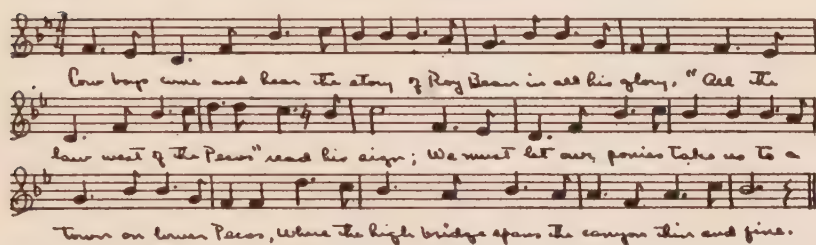 Cow boys come and hear the story of Roy Bean in all his glory, "All the
law west of the Pecos" read his sign; We must let our ponies take us to a
town on lower Pecos, Where the high bridge spans the canyon thin and fine.